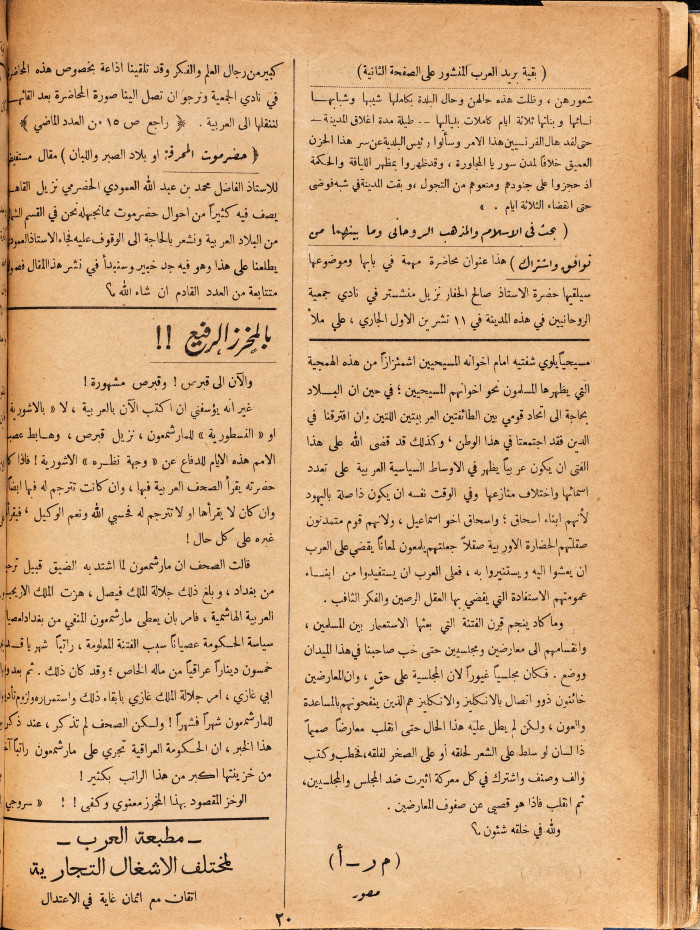 ( بقية بريد العرب المنشور على الصفحة الثانية )
شعورهن ، وظلت هذه حالهن وحال البلدة بكاملها شيبها وشبابها
نسائها وبناتها ثلاثة ايام كاملات بلياليها -- طيلة مدة اغلاق المدينة --
حتى لقد هال الفرنسيين هذا الامر وسألوا رئيس البلدية عن سر هذا الحزن
العميق خلافاً لمدن سوريا المجاورة ، وقد ظهروا بمظهر اللياقة والحكمة
اذ حجزوا على جنودهم ومنعوهم من التجول ، وبقت المدينة في شبه فوضى
حتى انقضاء الثلاثة ايام . »
( بحث في الاسلام والمذهب الروحاني وما بينهما من
توافق واشتراك ) هذا عنوان محاضرة مهمة في بابها وموضوعها
سيلقيها حضرة الاستاذ صالح الحفار نزيل منشستر في نادي جمعية
الروحانيين في هذه المدينة في ١١ تشرين الاول الجاري ، على ملأ
مسيحياً يلوي شفتيه امام اخوانه المسيحيين اشمئزازاً من هذه الهمجية
التي يظهرها المسلمون نحو اخوانهم المسيحيين ؛ في حين ان البلاد
بحاجة الى اتحاد قومي بين الطائفتين العربيتين اللتين وان افترقتا في
الدين فقد اجتمعتا في هذا الوطن ، وكذلك قد قضى الله على هذا
الفتى ان يكون عربياً يظهر في الاوساط السياسية العربية على تعدد
اسمائها واختلاف منازعها وفي الوقت نفسه ان يكون ذا صلة باليهود
لأنهم ابناء اسحاق ؛ واسحاق اخو اسماعيل ، ولانهم قوم متمدنون
صقلتهم الحضارة الاوربية صقلاً جعلتهم يلمعون لمعاناً يقضي على العرب
ان يعشوا اليه ويستنيروا به ، فعلى العرب ان يستفيدوا من ابناء
عمومتهم الاستفادة التي يقضي بها العقل الرصين والفكر الثاقب .
وما كاد ينجم قرن الفتنة التي بعثها الاستعمار بين المسلمين ،
وانقسامهم الى معارضين ومجلسيين حتى خب صاحبنا في هذا الميدان
ووضع . فكان مجلسياً غيوراً لان المجلسية على حق ، وان المعارضين
خائنون ذوو اتصال بالانكليز والانكليز هم الذين ينفحونهم بالمساعدة
والعون ، ولكن لم يطل عليه هذا الحال حتى انقلب معارضاً صميماً
ذا لسان لو سلط على الشعر لحلقه أو على الصخر لفلقه ، فخطب وكتب
والف وصنف واشترك في كل معركة اثيرت ضد المجلس والمجلسيين ،
ثم انقلب فاذا هو قصي عن صفوف المعارضين .
ولله في خلقه شئون ؟
( م ر ـ أ )
مصور
كبير من رجال العلم والفكر وقد تلقينا اذاعة بخصوص هذه المحاضرة
في نادي الجمعية ونرجو ان تصل الينا صورة المحاضرة بعد القائها
لننقلها الى العربية . ﴿ راجع ص ١٥ من العدد الماضي ﴾
﴿ حضرموت المحرقة او بلاد الصبر واللبان ) مقال مستفيض
للاستاذ الفاضل محمد بن عبد الله العمودي الحضرمي نزيل القاهرة
يصف فيه كثيراً من احوال حضرموت مما نجهله نحن في القسم
من البلاد العربية ونشعر بالحاجة الى الوقوف عليه فجاء الاستاذ العمودي
يطلعنا على هذا وهو فيه جد خبير وسنبدأ في نشر هذا المقال فصولاً
متتابعة من العدد القادم ان شاء الله ؟
بالمخرز الرفيع !!
والآن الى قبرص ! وقبرص مشهورة !
غير انه يؤسفني ان اكتب الآن بالعربية ، لا « بالاشورية »
او « النسطورية » للمارشمعون ، نزيل قبرص ، وهابط
الامم هذه الايام للدفاع عن « وجهة نظره » الاشورية !
حضرته يقرأ الصحف العربية فيها ، وان كانت تترجم له فيها ايضاً
وان كان لا يقرأها او لا تترجم له فحسبي الله ونعم الوكيل ،
غيره على كل حال !
قالت الصحف ان مارشمعون لما اشتد به الضيق قبيل
من بغداد ، وبلغ ذلك جلالة الملك فيصل ، هزت الملك الاريحية
العربية الهاشمية ، فامر بان يعطى مارشمعون المنفي من بغداد
سياسة الحكومة عصياناً سبب الفتنة المعلومة ، راتباً شهرياً
خمسون ديناراً عراقياً من ماله الخاص ؛ وقد كان ذلك . ثم بعد
ابي غازي ، امر جلالة الملك غازي بابقاء ذلك واستمراره
للمارشمعون شهراً فشهراً ! ولكن الصحف لم تذكر ، عند ذكر
هذا الخبر ، ان الحكومة العراقية تجري على مارشمعون راتباً
من خزينتها اكبر من هذا الراتب بكثير !
الوخز المقصود بهذا المخرز معنوي وكفى !! « سروجي
ـ مطبعة العرب ـ
لمختلف الاشغال التجارية
اتقان مع اثمان غاية في الاعتدال
٢٠